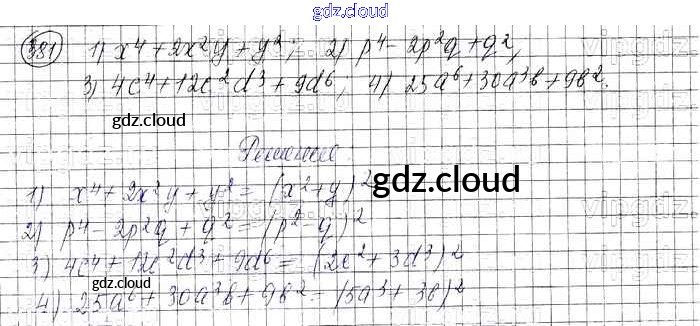 gdz.cloud
381 1) x⁴ + 2x²y + y²; 2) p⁴ - 2p²q + q²,
3) 4c⁴ + 12c²d³ + 9d⁶; 4) 25a⁶ + 30a³b + 9b².
gdz.cloud
Решение
1) x⁴ + 2x²y + y² = (x² + y)²
gdz.cloud
2) p⁴ - 2p²q + q² = (p² - q)²
3) 4c⁴ + 12c²d³ + 9d⁶ = (2c² + 3d³)²
4) 25a⁶ + 30a³b + 9b² = (5a³ + 3b)²
gdz.cloud
gdz.cloud